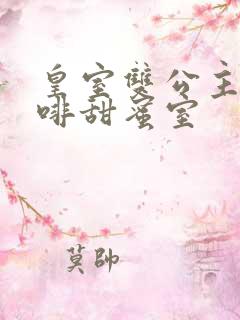 皇室雙公主
啡甜蜜室
莫帥